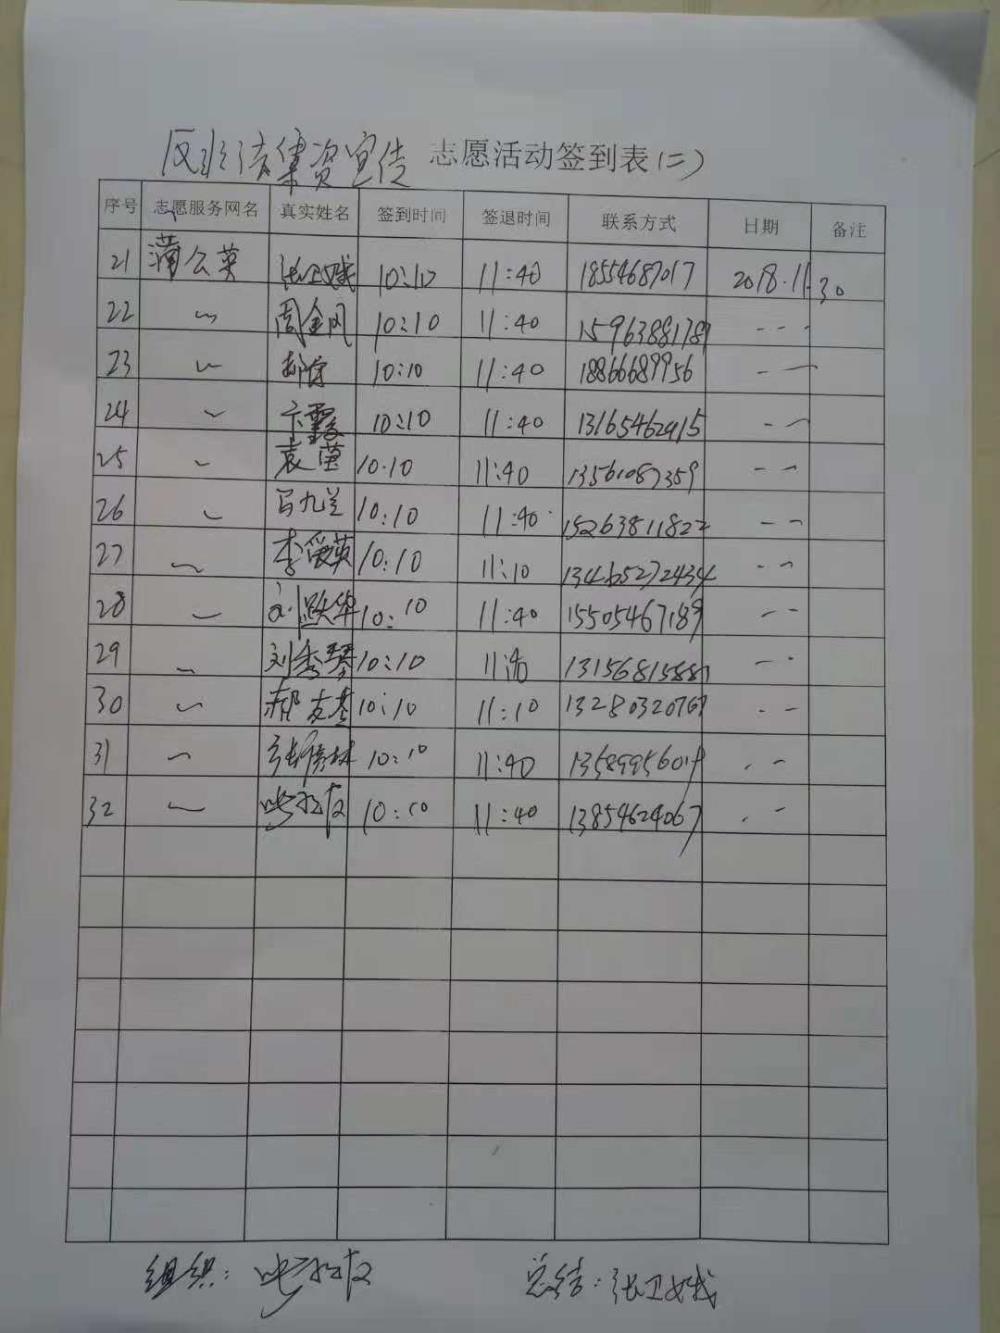 反非法集资宣传 志愿活动签到表(二)
序号 志愿服务网名 真实姓名 签到时间 签退时间 联系方式 日期 备注
21 蒲公英 张卫娥 10:10 11:40 18554687017 2018.11.30
22 〃 周金凤 10:10 11:40 15963881789 - - -
23 〃 10:10 11:40 18866689956 - -
24 〃 卞霞 10:10 11:40 13165462915 - -
25 〃 袁莹 10:10 11:40 13561087359 - -
26 〃 马九兰 10:10 11:40 15263811822 - -
27 〃 李爱英 10:10 11:10 13465272434 - -
28 〃 刘跃华 10:10 11:40 15505467189 - -
29 〃 刘秀琴 10:10 11:40 13156815881 - -
30 〃 郝友基 10:10 11:10 13280320767 - -
31 〃 10:10 11:40 13589956019 - -
32 〃 10:10 11:40 13854624067 - -
组织: 总结:张卫娥